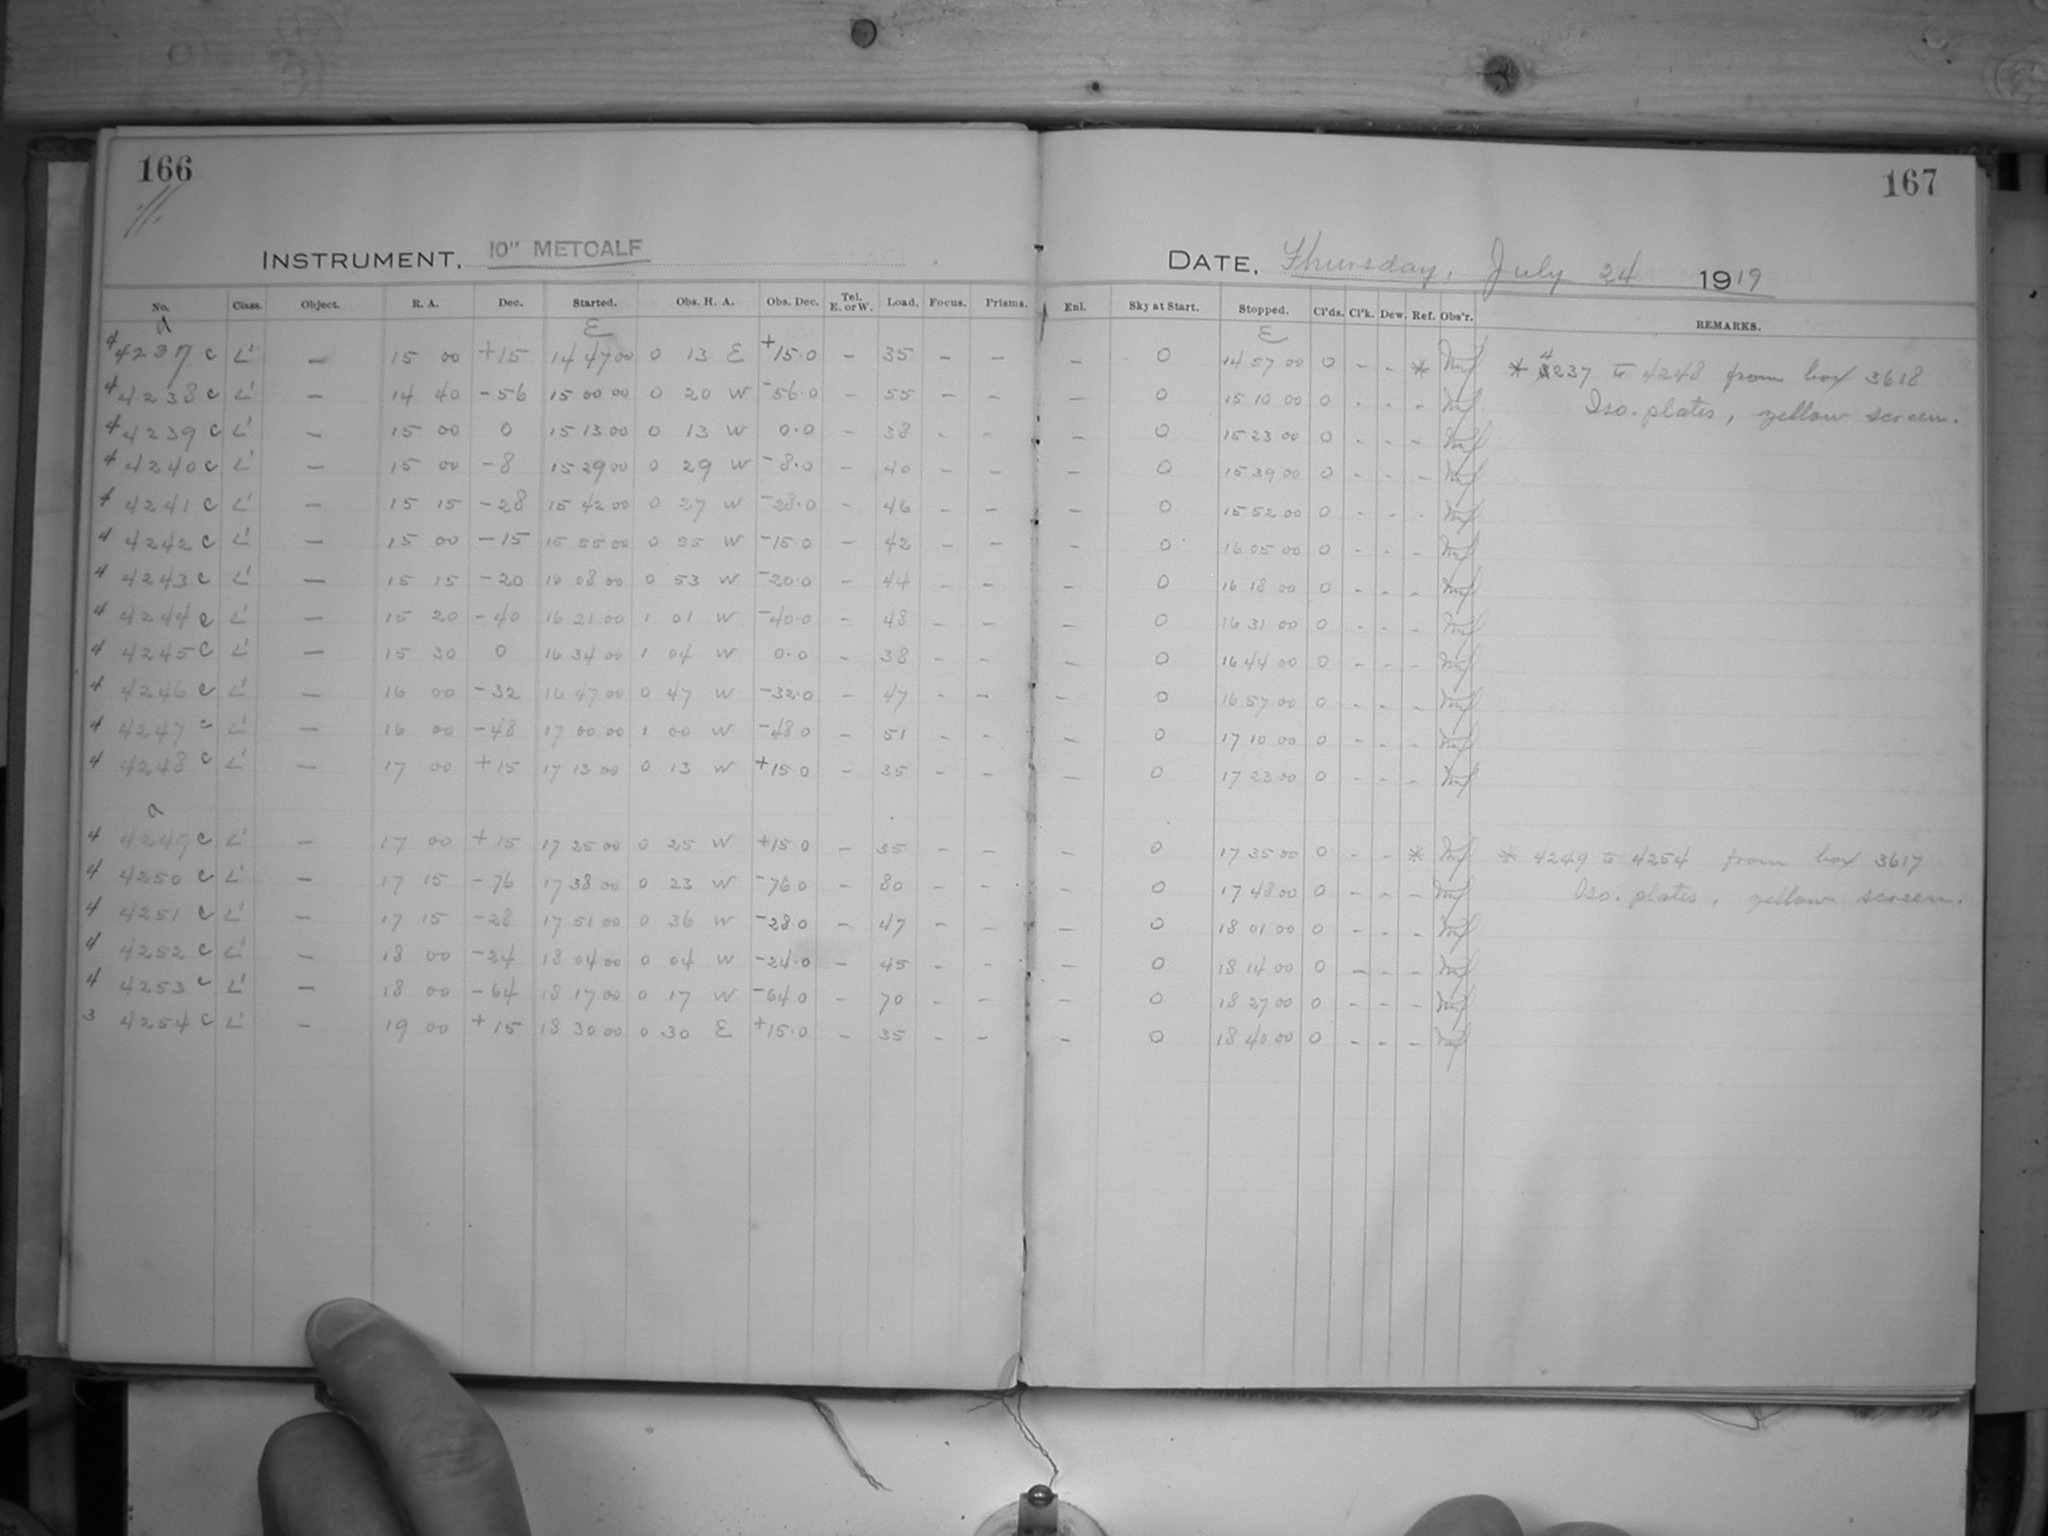 166
167
INSTRUMENT, 10" METCALF
DATE, Thursday, July 24 1919
No. Class. Object. R. A. Dec. Started. Obs. H. A. Obs. Dec. Tel. E. or W. Load. Focus. Prisms. Enl. Sky at Start. Stopped. Cl'ds. Cl'k. Dew. Ref. Obs'r. REMARKS.
a E E
4 4237 c L' — 15 00 +15 14 47 00 0 13 E +15.0 – 35 – – – 0 14 57 00 0 - - * * 4237 to 4248 from box 3618
4 4238 c L' — 14 40 -56 15 00 00 0 20 W -56.0 – 55 – – – 0 15 10 00 0 - - - Iso. plates, yellow screen.
4 4239 c L' — 15 00 0 15 13 00 0 13 W 0.0 – 38 - - – 0 15 23 00 0 - - -
4 4240 c L' — 15 00 -8 15 29 00 0 29 W -8.0 – 40 - - – 0 15 39 00 0 - - -
4 4241 c L' — 15 15 -28 15 42 00 0 27 W -28.0 – 46 – – – 0 15 52 00 0 - - -
4 4242 c L' — 15 00 -15 15 55 00 0 55 W -15.0 – 42 – – – 0 16 05 00 0 - - -
4 4243 c L' — 15 15 -20 16 08 00 0 53 W -20.0 – 44 – – – 0 16 18 00 0 - - -
4 4244 c L' — 15 20 -40 16 21 00 1 01 W -40.0 – 48 – – – 0 16 31 00 0 - - -
4 4245 c L' — 15 30 0 16 34 00 1 04 W 0.0 – 38 – – – 0 16 44 00 0 - - -
4 4246 c L' — 16 00 -32 16 47 00 0 47 W -32.0 – 47 – – – 0 16 57 00 0 - - -
4 4247 c L' — 16 00 -48 17 00 00 1 00 W -48.0 – 51 – – – 0 17 10 00 0 - - -
4 4248 c L' — 17 00 +15 17 13 00 0 13 W +15.0 – 35 – – – 0 17 23 00 0 - - -
a
4 4249 c L' — 17 00 +15 17 25 00 0 25 W +15.0 – 35 – – – 0 17 35 00 0 - - * * 4249 to 4254 from box 3617
4 4250 c L' — 17 15 -76 17 38 00 0 23 W -76.0 – 80 – – – 0 17 48 00 0 - - - Iso. plates, yellow screen.
4 4251 c L' — 17 15 -28 17 51 00 0 36 W -28.0 – 47 – – – 0 18 01 00 0 - - -
4 4252 c L' — 18 00 -24 18 04 00 0 04 W -24.0 – 45 – – – 0 18 14 00 0 - - -
4 4253 c L' — 18 00 -64 18 17 00 0 17 W -64.0 – 70 – – – 0 18 27 00 0 - - -
3 4254 c L' — 19 00 +15 18 30 00 0 30 E +15.0 – 35 – – – 0 18 40 00 0 - - -